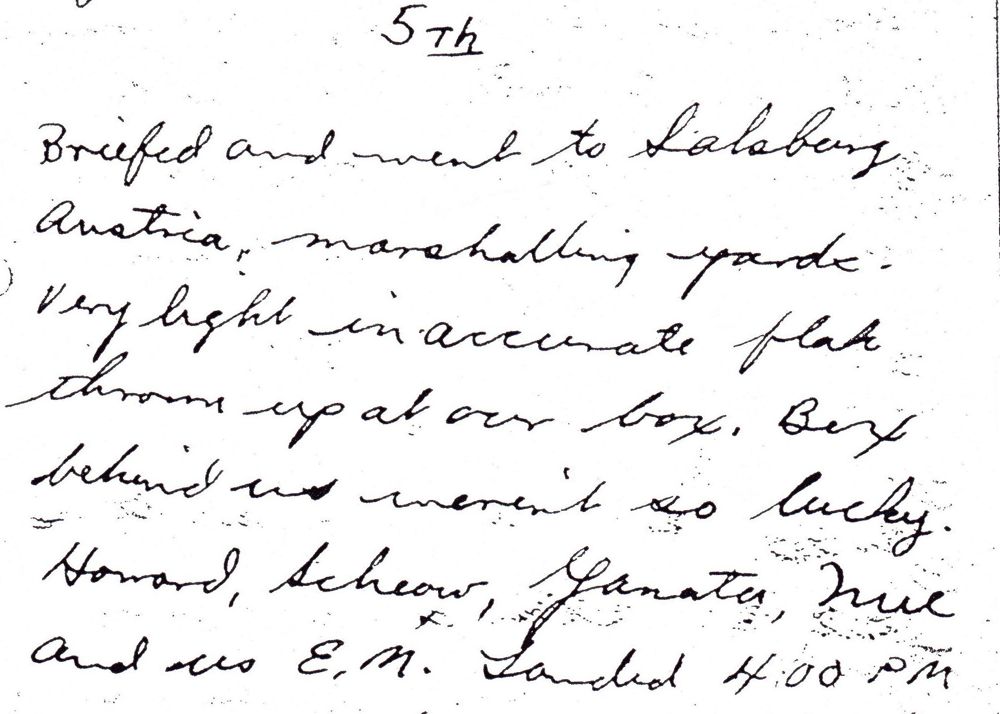 5Th
Briefed and went to Salsburg
Austria, marshalling yards.
Very light inaccurate flak
thrown up at our box. Box
behind us weren't so lucky.
Howard, Scheow,
and us E.M. Landed 4:00 PM